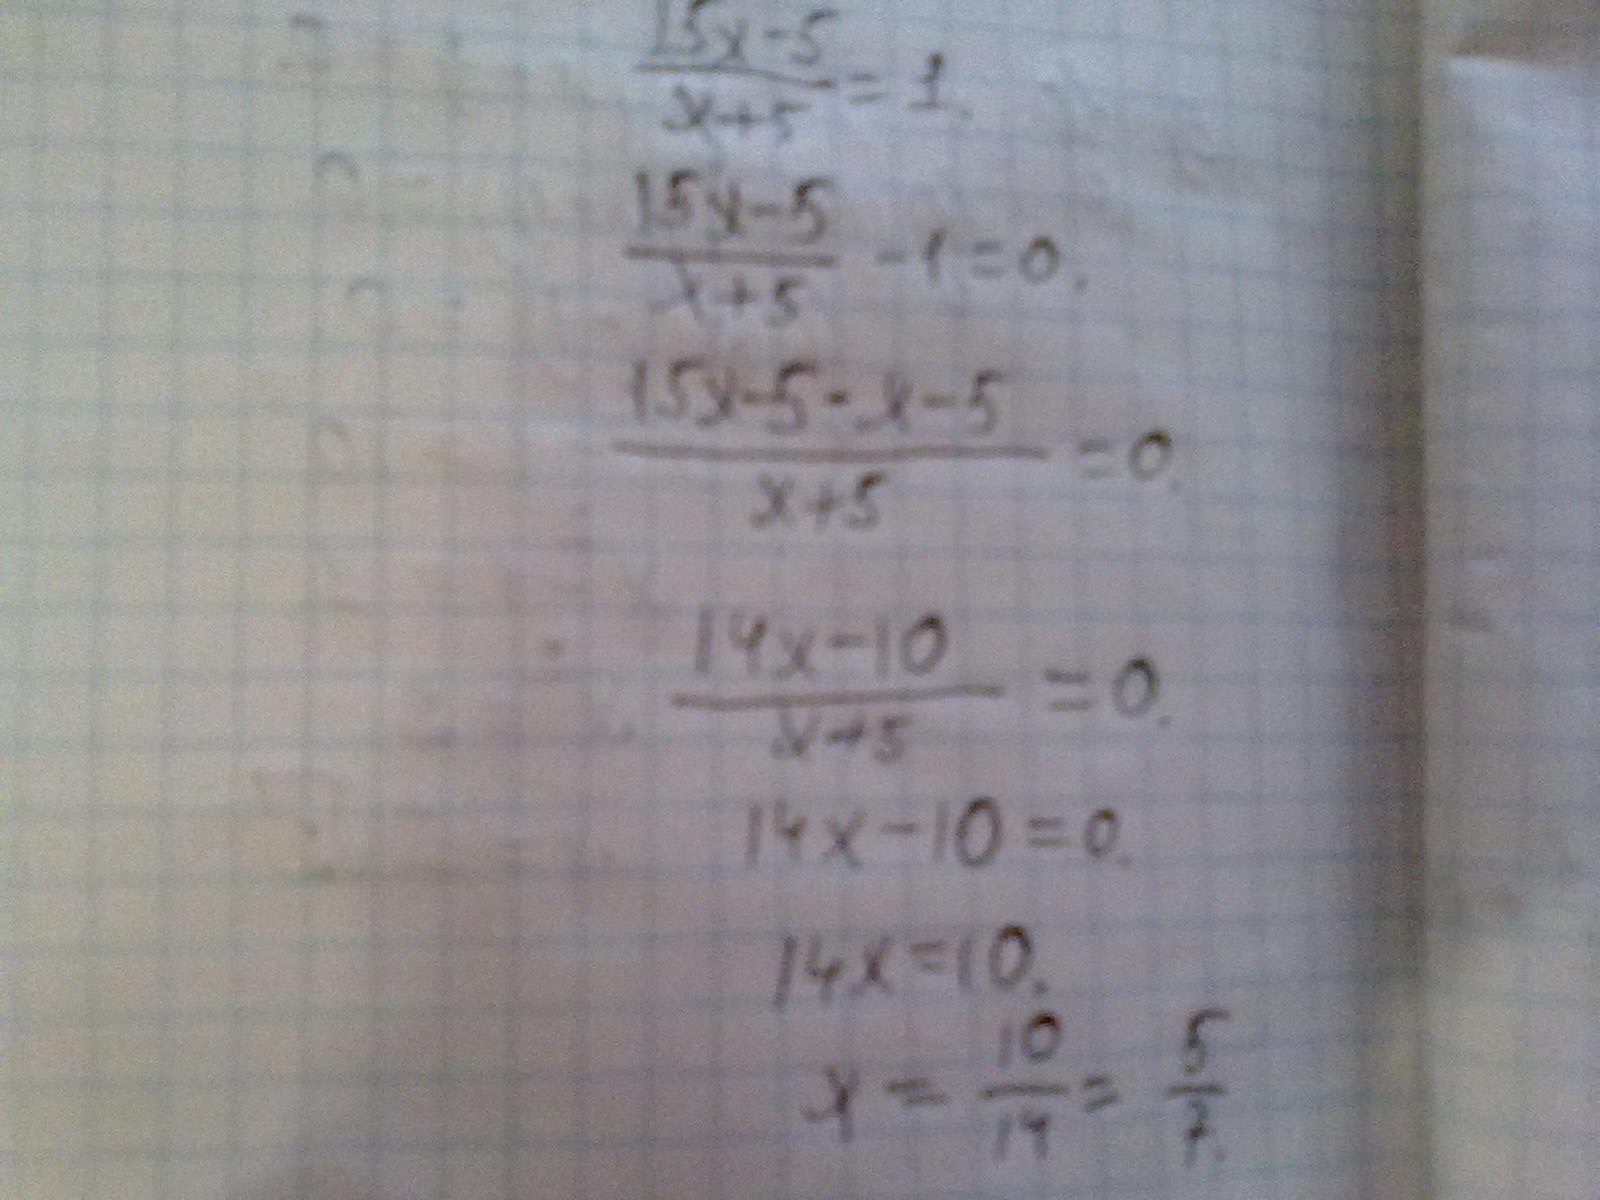 (15x-5)/(x+5) = 1.
(15x-5)/(x+5) - 1 = 0.
(15x-5-x-5)/(x+5) = 0.
(14x-10)/(x+5) = 0.
14x-10=0.
14x=10.
x = 10/14 = 5/7.